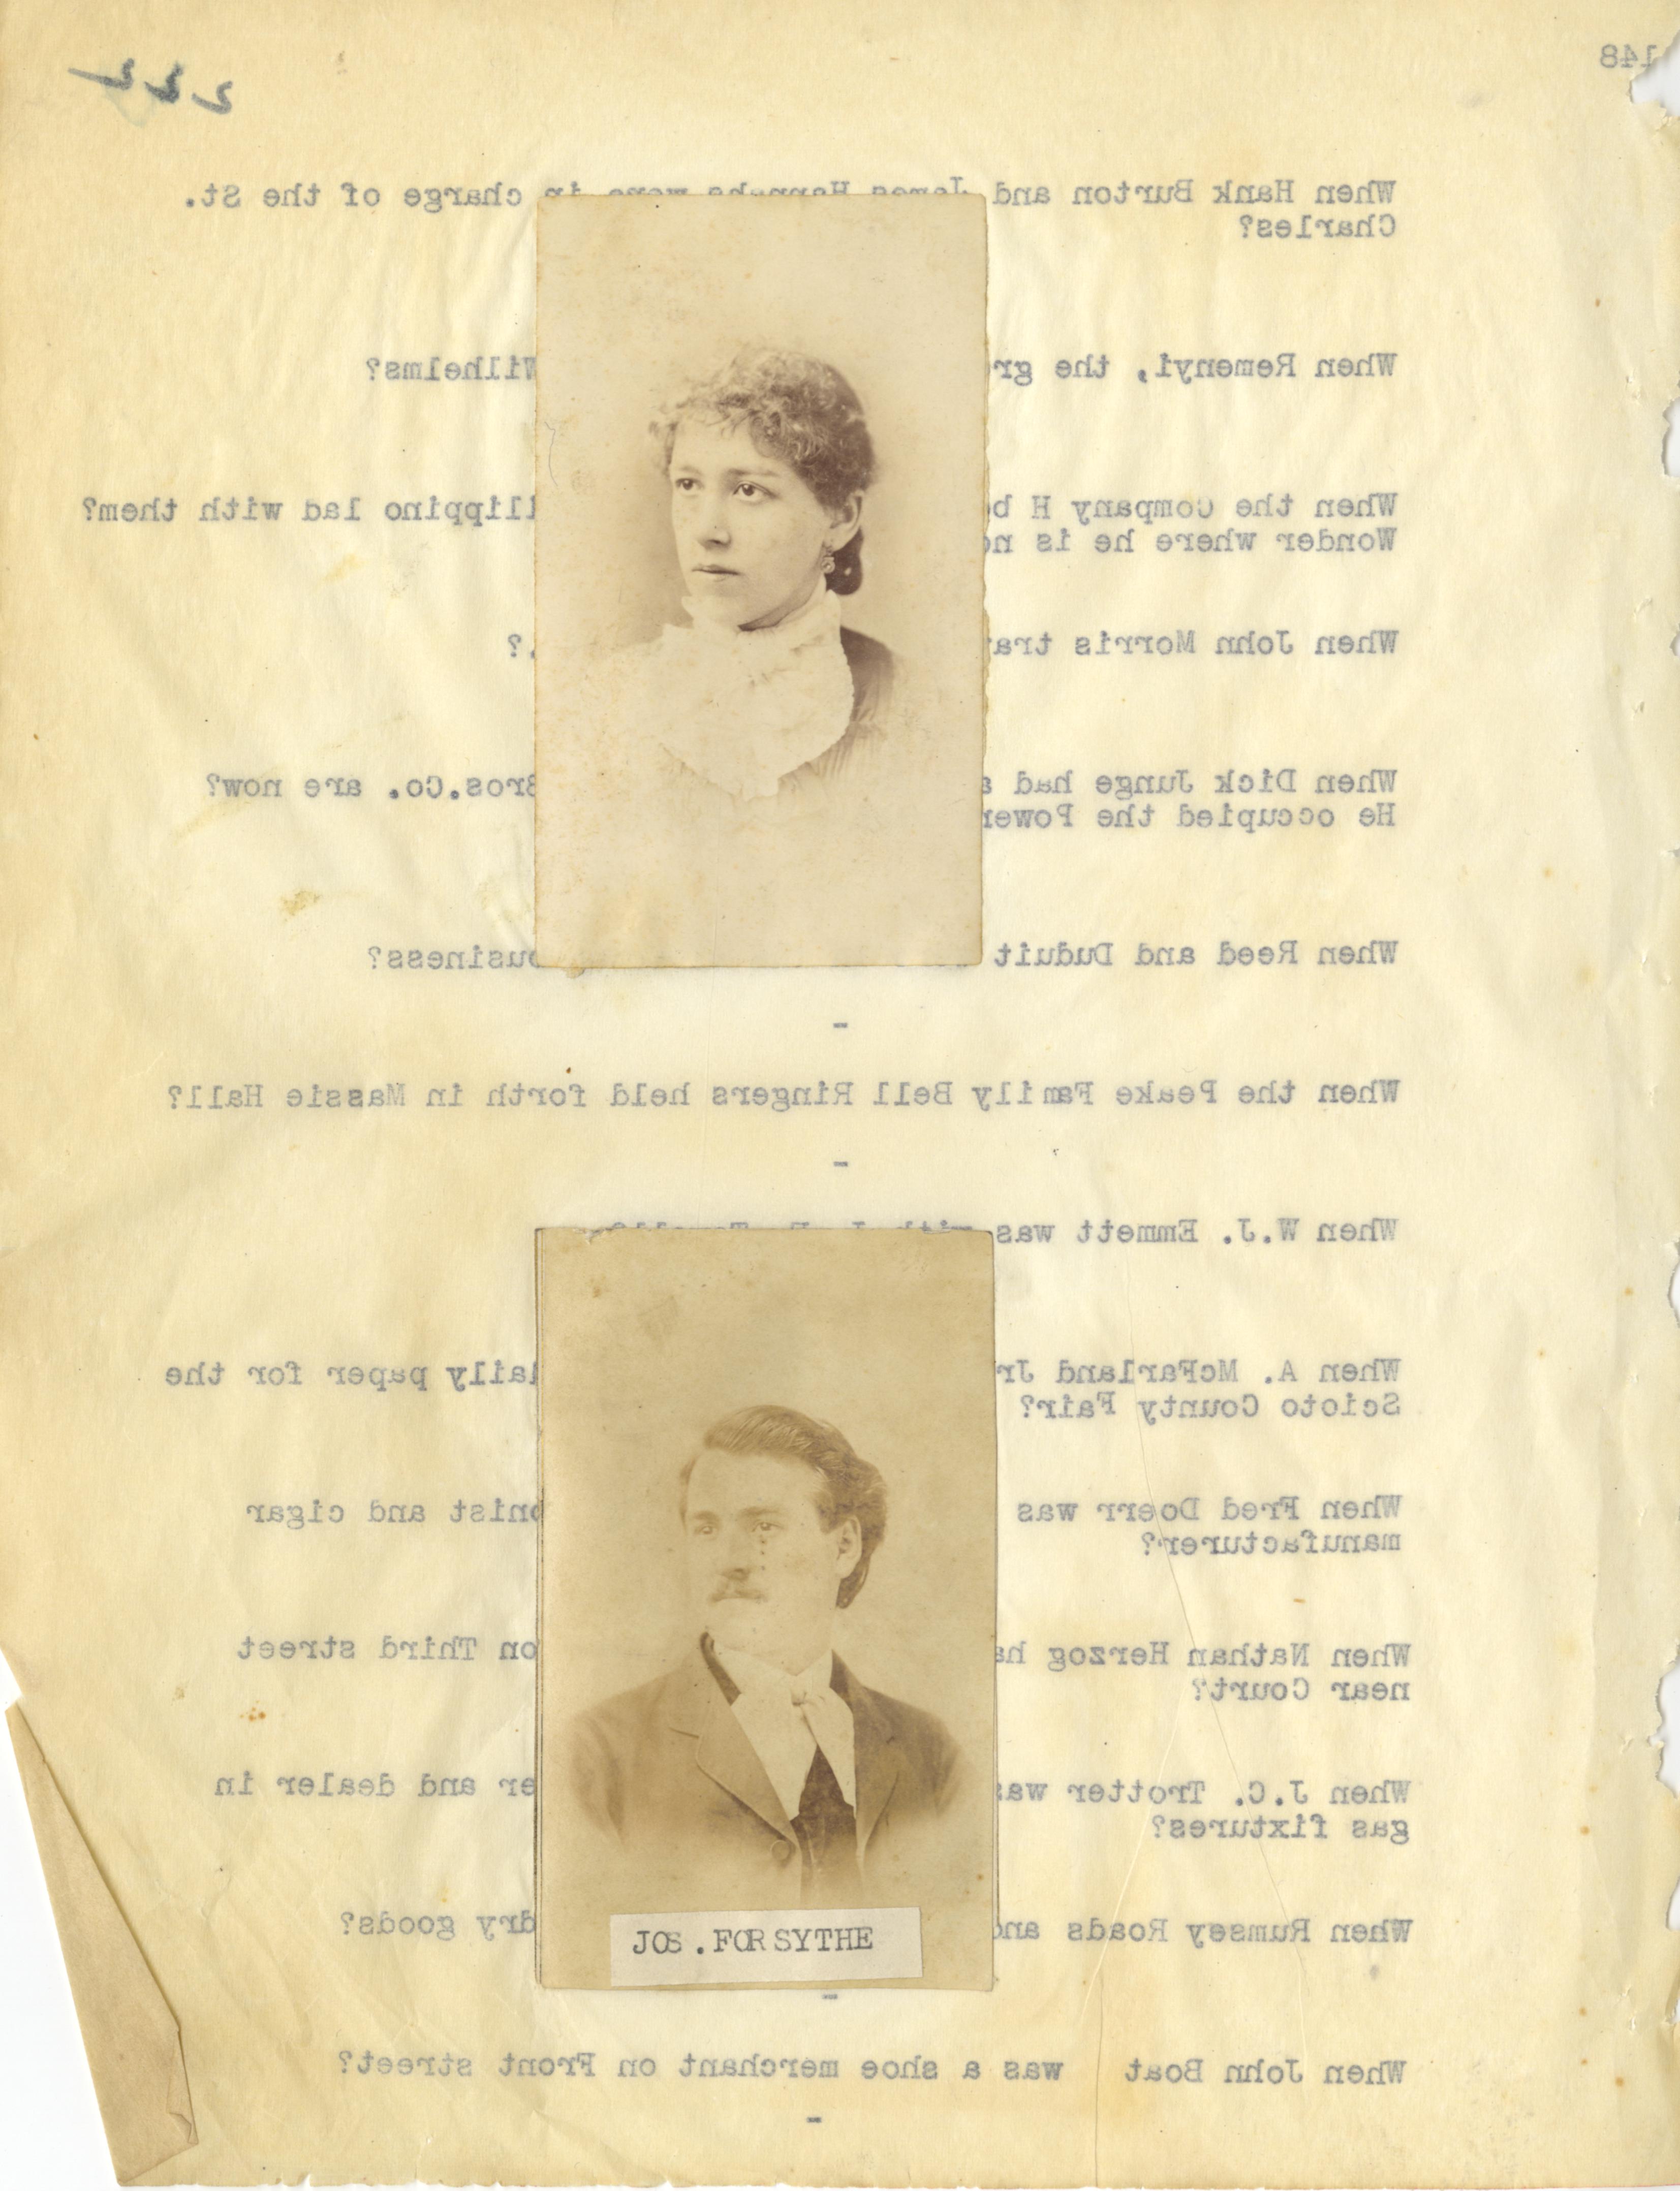 148
222
When Hank Burton and James Hannahs were in charge of the St.
Charles?
When Remenyi, the Wilhelms?
When the Company H lad with them?
Wonder where he is
When John Morris
When Dick Junge had Bros.Co. are now?
He occupied the
When Reed and Duduit business?
-
When the Peake Family Bell Ringers held forth in Massie Hall?
-
When W.J. Emmett was with
When A. McFarland Jr daily paper for the
Scioto County Fair?
When Fred Doerr was and cigar
manufacturer?
When Nathan Herzog on Third street
near Court?
When J.C. Trotter was and dealer in
gas fixtures?
When Rumsey Roads and dry goods?
JOS.FORSYTHE
-
When John Boat was a shoe merchant on Front street?
-